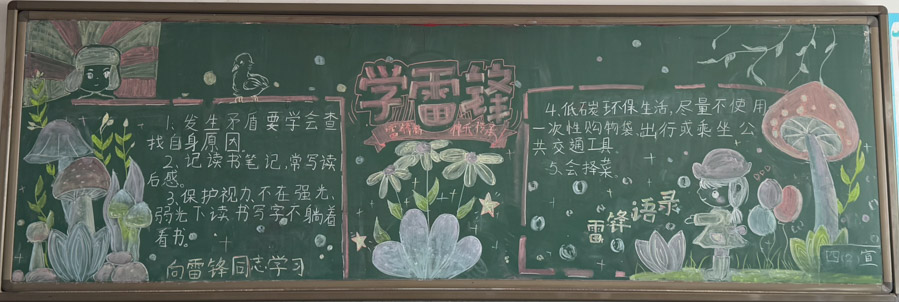 学雷锋
1.发生矛盾要学会查
找自身原因.
2.记读书笔记,常写读
后感.
3.保护视力,不在强光、
弱光下读书写字不躺着
看书.
向雷锋同志学习
4.低碳环保生活,尽量不使用
一次性购物袋.出行或乘坐公
共交通工具.
5.会择菜.
雷锋语录